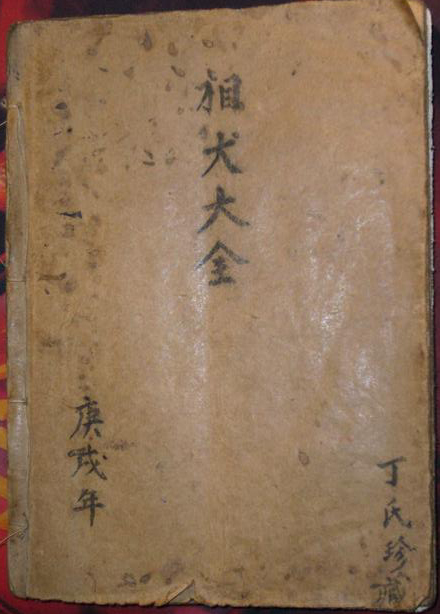 丁氏珍藏
相犬大全
庚戌年